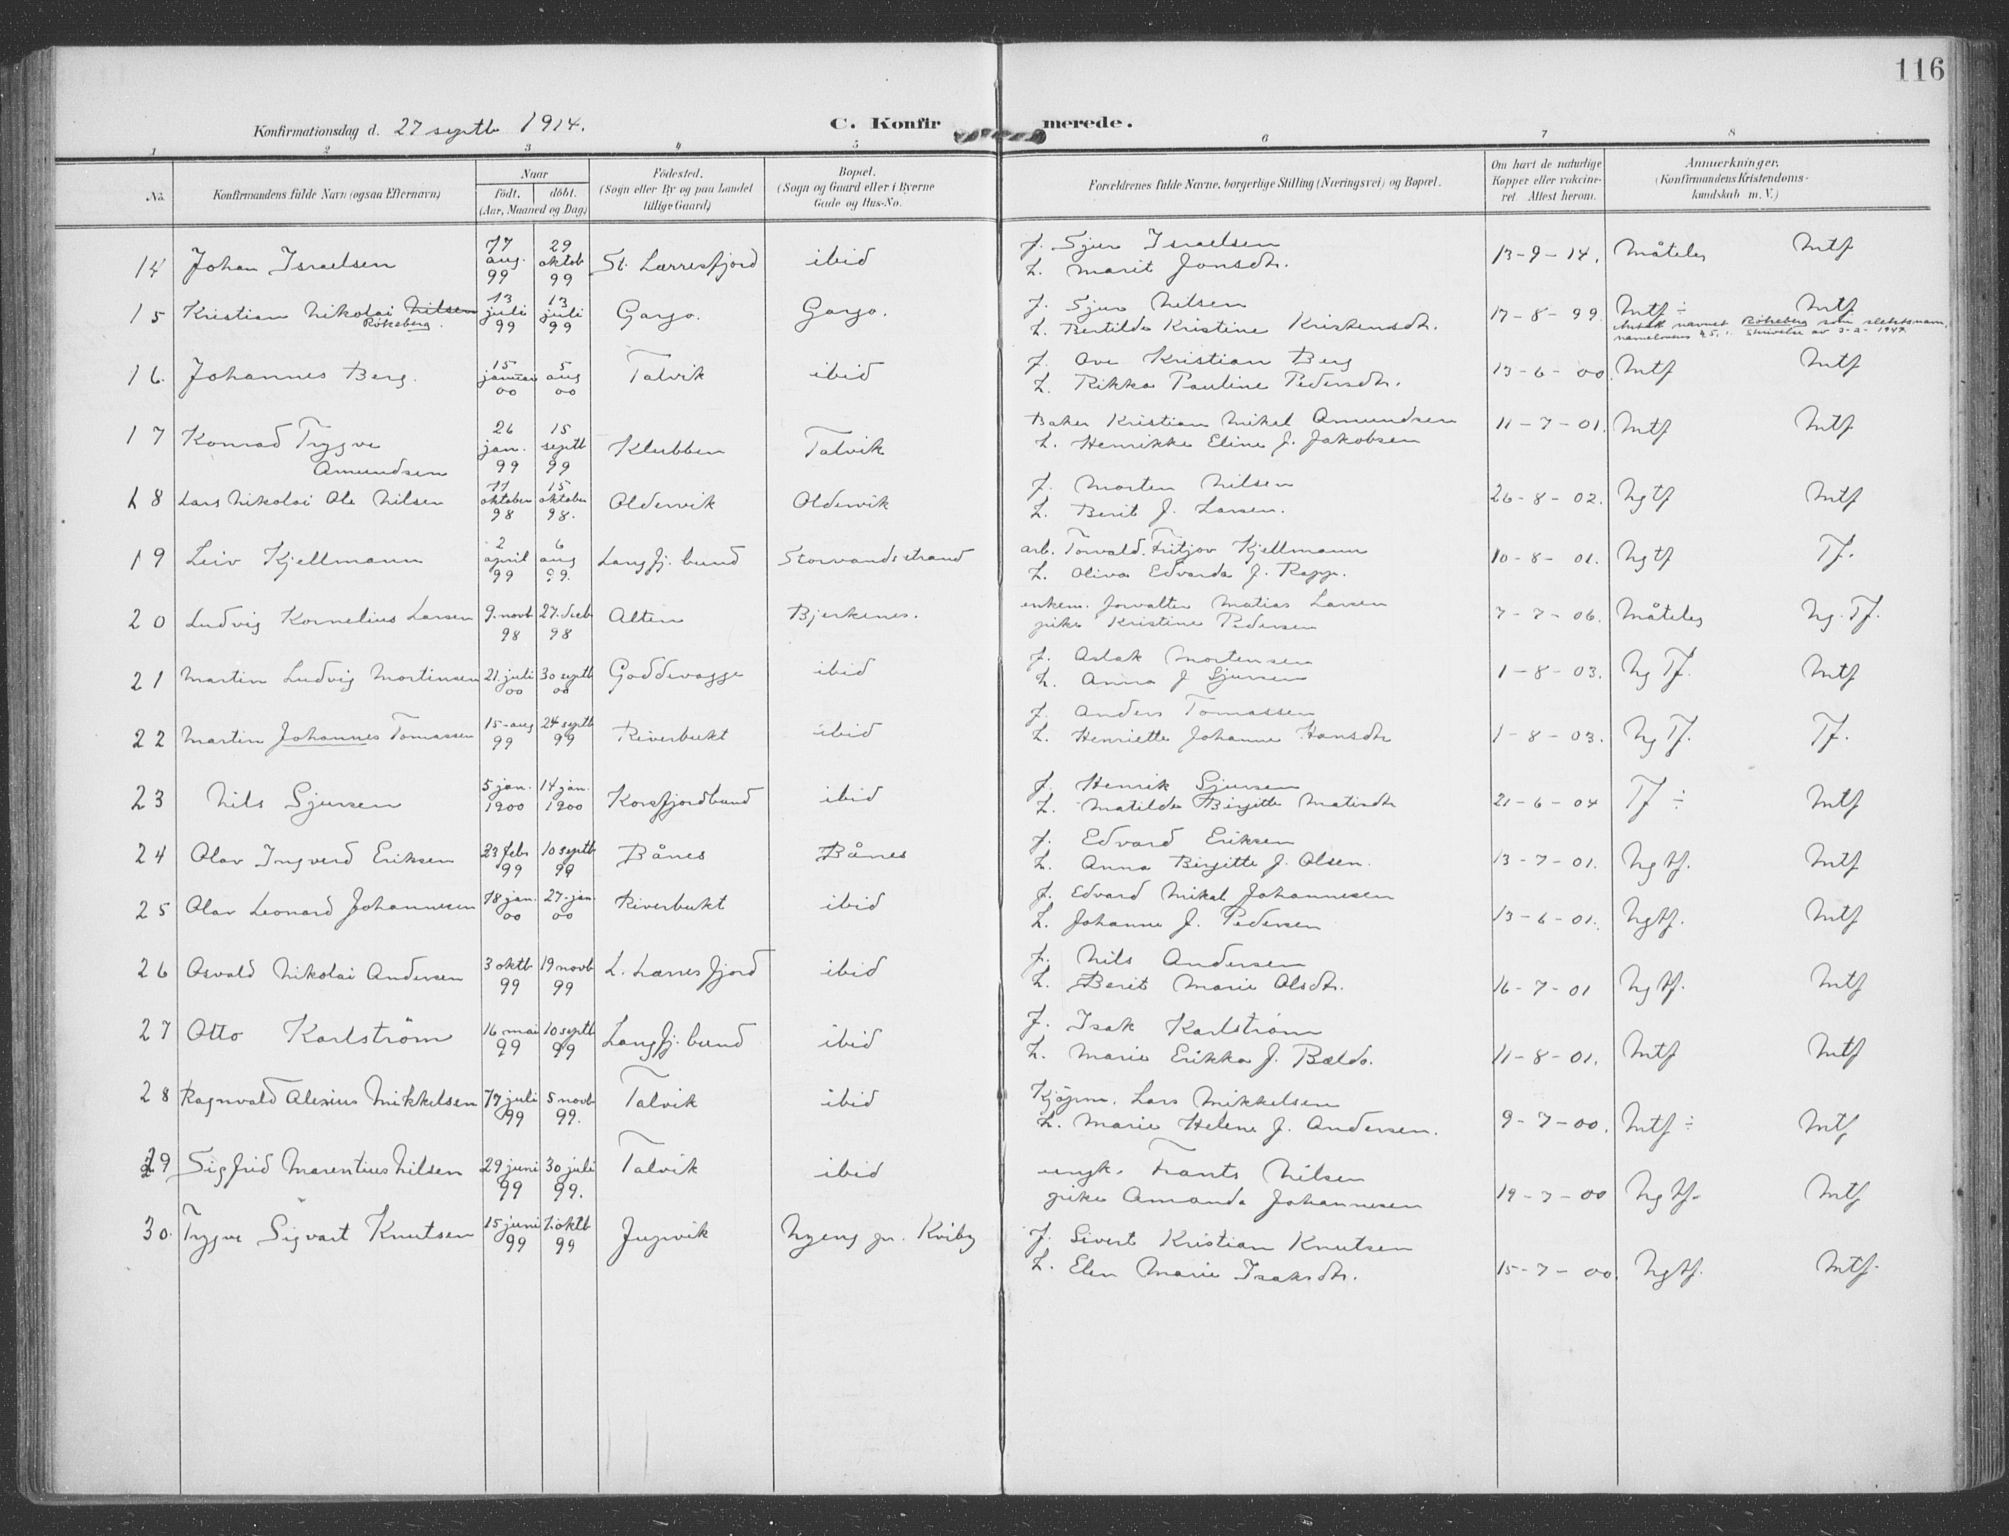 116
Konfirmationsdag d. 27 septb 1914. C. Konfirmerede.
1 2 3 4 5 6 7 8
No. Konfirmandens fulde Navn (ogsaa Efternavn) Naar født. døbt. (Aar, Maaned og Dag) Fødested. (Sogn eller By og paa Landet tillige Gaard) Bopæl. (Sogn og Gaard eller i Byerne Gade og Hus-No. Forældrenes fulde Navne, borgerlige Stilling (Næringsvei) og Bopæl. Om havt de naturlige Kopper eller vakcineret Attest herom. Anmerkninger. (Konfirmandens Kristendomskundskab m. V.)
14 Johan Israelsen 17 aug. 99 29 oktob 99 St. Lærresfjord ibid f. Sjur Israelsen
h. Marit Jonsdtr. 13-9-14. Måteles Mtf
15 Kristian Nikolai Nilsen 13 juli 99 13 juli 99 Gargo. Gargo. f. Sjur Nilsen
Rökeberg. h. Bentilde Kristine Kristensdtr. 17-8-99 Mtf ÷ Mtf
Antok navnet Rökeberg som slektsnavn,
navnelovens § 5, 1. Skrivelse av 3-2-1947.
16. Johannes Berg. 15 januar 00 5 aug 00 Talvik ibid f. Ove Kristian Berg
h. Rikka Pauline Pedersdtr. 13-6-00. Mtf Mtf
17 Konrad Trygve 26 jan. 99 15 septb 99 Klubben Talvik Baker Kristian Mikel Amundsen
Amundsen h. Henrikke Eline f. Jakobsen 11-7-01. Mtf Mtf
18 Lars Nikolai Ole Nilsen 11 oktober 98 15 oktober 98. Oldervik Oldervik f. Morten Nilsen
h. Berit f. Larsen. 26-8-02. Ngtf Mtf
19 Leiv Kjellmann 2 april 99 6 aug 99. Langfj. bund Storvandsstrand arb. Torvald Fritjov Kjellmann
h. Oliva Edvarda f. Rapp. 10-8-01. Ngtf Tf.
20 Ludvig Kornelius Larsen 9. novb 98 27. deb 98 Alten Bjerkenes. enkem. forvalter Matias Larsen
pike Kristine Pedersen 7-7-06. Måteles Ng. Tf.
21 Martin Ludvig Mortinsen 21. juli 00 30 septb 00 Goddevagge ibid f. Aslak Mortensen
h. Anna f Sjursen 1-8-03. Ng Tf. Mtf
22 Martin Johannes Tomassen 15-aug 99 24 septb 99 Riverbukt ibid f. Anders Tomassen
h. Henriette Johanne Hansdtr 1-8-03. Ng Tf. Tf.
23 Nils Sjursen 5 jan. 1900 14 jan. 1900 Korsfjordbund ibid f. Henrik Sjursen
h. Matilde Birgitte Matisdtr 21-6-04 Tf ÷ Mtf
24 Olav Ingverd Eriksen 23 febr 99 10 septb 99 Bånes Bånes f. Edvard Eriksen
h. Anna Birgitte f. Olsen. 13-7-01. Ngtf. Mtf
25 Olav Leonard Johannesen 18 jan. 00 27-jan 00 Riverbukt ibid f. Edvard Mikal Johannesen
h. Johanne f. Pedersen 13-6-01. Ngtf. Mtf
26 Osvald Nikolai Andersen 3 oktb 99 19 novb 99 L. Lærresfjord ibid f. Nils Andersen
h. Berit Marie Olsdtr. 16-7-01 Ngtf. Mtf
27 Otto Karlström 16 mai 99 10 septb 99 Langfj. bund ibid f. Isak Karlström
h. Marie Erikka f. Bældo. 11-8-01. Mtf Mtf
28 Ragnvald Alexius Mikkelsen 17 juli 99 5 novb 99. Talvik ibid Kjöpm. Lars Mikkelsen
h. Marie Helene f. Andersen. 9-7-00. Mtf ÷ Mtf
29 Sigfrid Marentius Nilsen 29 juni 99 30 juli 99. Talvik ibid ungk. Frants Nilsen
pike Amanda Johannesen 19-7-00 Ngtf. Mtf
30. Trygve Sigvart Knutsen 15 juni 99 1. oktb 99 Jupvik Nyeng pr. Kviby f. Sivert Kristian Knutsen
h. Elen Marie Isaksdtr. 15-7-00. Ngtf. Mtf.